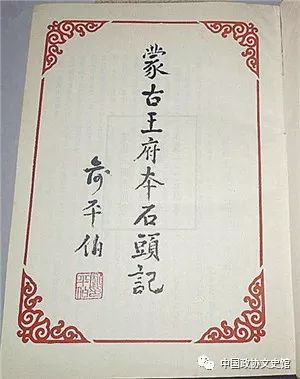 蒙古王府本石頭記
俞平伯
中国政协文史馆